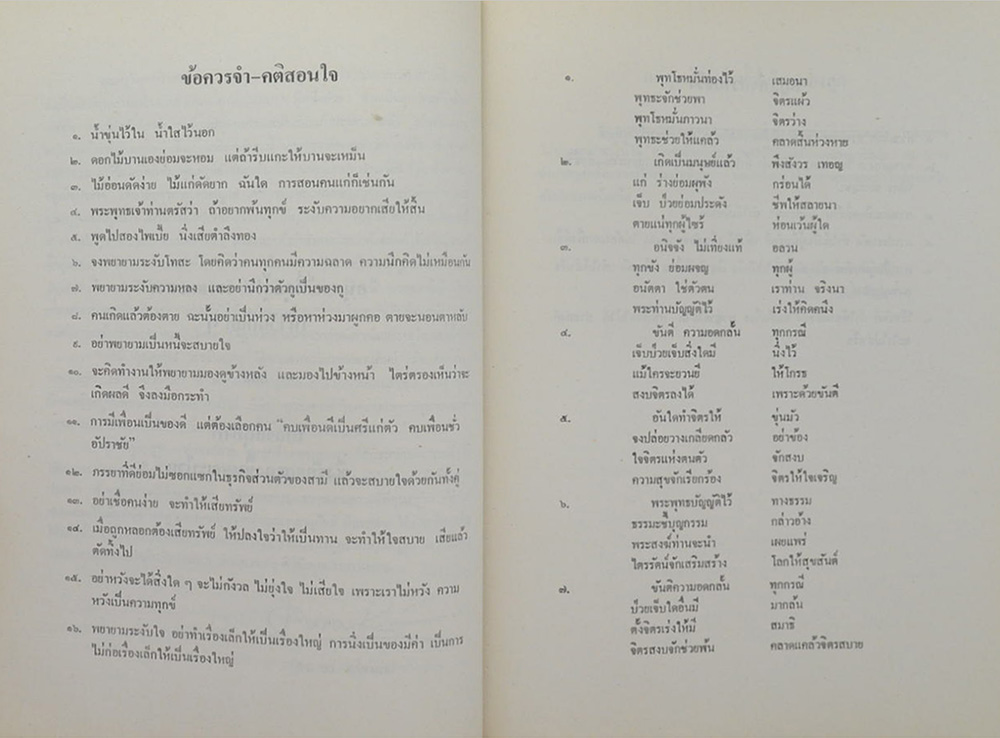 ข้อควรจำ-คติสอนใจ
๑. น้ำขุ่นไว้ใน น้ำใสไว้นอก
๒. ดอกไม้บานเองย่อมจะหอม แต่ถ้ารีบแกะให้บานจะเหม็น
๓. ไม้อ่อนดัดง่าย ไม้แก่ดัดยาก ฉันใด การสอนคนแก่ก็เช่นกัน
๔. พระพุทธเจ้าท่านตรัสว่า ถ้าอยากพ้นทุกข์ ระงับความอยากเสียให้สิ้น
๕. พูดไปสองไพเบี้ย นิ่งเสียตำลึงทอง
๖. จงพยายามระงับโทสะ โดยคิดว่าคนทุกคนมีความฉลาด ความนึกคิดไม่เหมือนกัน
๗. พยายามระงับความหลง และอย่านึกว่าตัวกูเป็นของกู
๘. คนเกิดแล้วต้องตาย ฉะนั้นอย่าเป็นห่วง หรือหาห่วงมาผูกคอ ตายจะนอนตาหลับ
๙. อย่าพยายามเป็นหนี้จะสบายใจ
๑๐. จะคิดทำงานให้พยายามมองดูข้างหลัง และมองไปข้างหน้า ไตร่ตรองเห็นว่าจะ
เกิดผลดี จึงลงมือกระทำ
๑๑. การมีเพื่อนเป็นของดี แต่ต้องเลือกคน "คบเพื่อนดีเป็นศรีแก่ตัว คบเพื่อนชั่ว
อัปราชัย"
๑๒. ภรรยาที่ดีย่อมไม่ซอกแซกในธุรกิจส่วนตัวของสามี แล้วจะสบายใจด้วยกันทั้งคู่
๑๓. อย่าเชื่อคนง่าย จะทำให้เสียทรัพย์
๑๔. เมื่อถูกหลอกต้องเสียทรัพย์ ให้ปลงใจว่าให้เป็นทาน จะทำให้ใจสบาย เสียแล้ว
ตัดทิ้งไป
๑๕. อย่าหวังจะได้สิ่งใด ๆ จะไม่กังวล ไม่ยุ่งใจ ไม่เสียใจ เพราะเราไม่หวัง ความ
หวังเป็นความทุกข์
๑๖. พยายามระงับใจ อย่าทำเรื่องเล็กให้เป็นเรื่องใหญ่ การนิ่งเป็นของมีค่า เป็นการ
ไม่ก่อเรื่องเล็กให้เป็นเรื่องใหญ่
๑. พุทโธหมั่นท่องไว้ เสมอนา
พุทธะจักช่วยพา จิตรแผ้ว
พุทโธหมั่นภาวนา จิตรว่าง
พุทธะช่วยให้แคล้ว คลาดสิ้นห่วงหาย
๒. เกิดเป็นมนุษย์แล้ว พึงสังวร เทอญ
แก่ ร่างย่อมผุพัง กร่อนได้
เจ็บ ป่วยย่อมประดัง ชีพให้สลายนา
ตายแน่ทุกผู้ไซร้ ห่อนเว้นผู้ใด
๓. อนิจจัง ไม่เที่ยงแท้ อลวน
ทุกขัง ย่อมผจญ ทุกผู้
อนัตตา ใช่ตัวตน เราท่าน จริงนา
พระท่านบัญญัติไว้ เร่งให้คิดคนึง
๔. ขันตี ความอดกลั้น ทุกกรณี
เจ็บป่วยเจ็บสิ่งใดมี นิ่งไว้
แม้ใครจะยวนยี ให้โกรธ
สงบจิตรลงได้ เพราะด้วยขันตี
๕. อันใดทำจิตรให้ ขุ่นมัว
จงปล่อยวางเกลียดกลัว อย่าข้อง
ใจจิตรแห่งตนตัว จักสงบ
ความสุขจักเรียกร้อง จิตรให้ใจเจริญ
๖. พระพุทธบัญญัติไว้ ทางธรรม
ธรรมะชี้บุญกรรม กล่าวอ้าง
พระสงฆ์ท่านจะนำ เผยแพร่
ไตรรัตน์จักเสริมสร้าง โลกให้สุขสันต์
๗. ขันตีความอดกลั้น ทุกกรณี
ป่วยเจ็บใดอื่นมี มากล้น
ตั้งจิตรเร่งให้มี สมาธิ
จิตรสงบจักช่วยพ้น คลาดแคล้วจิตรสบาย